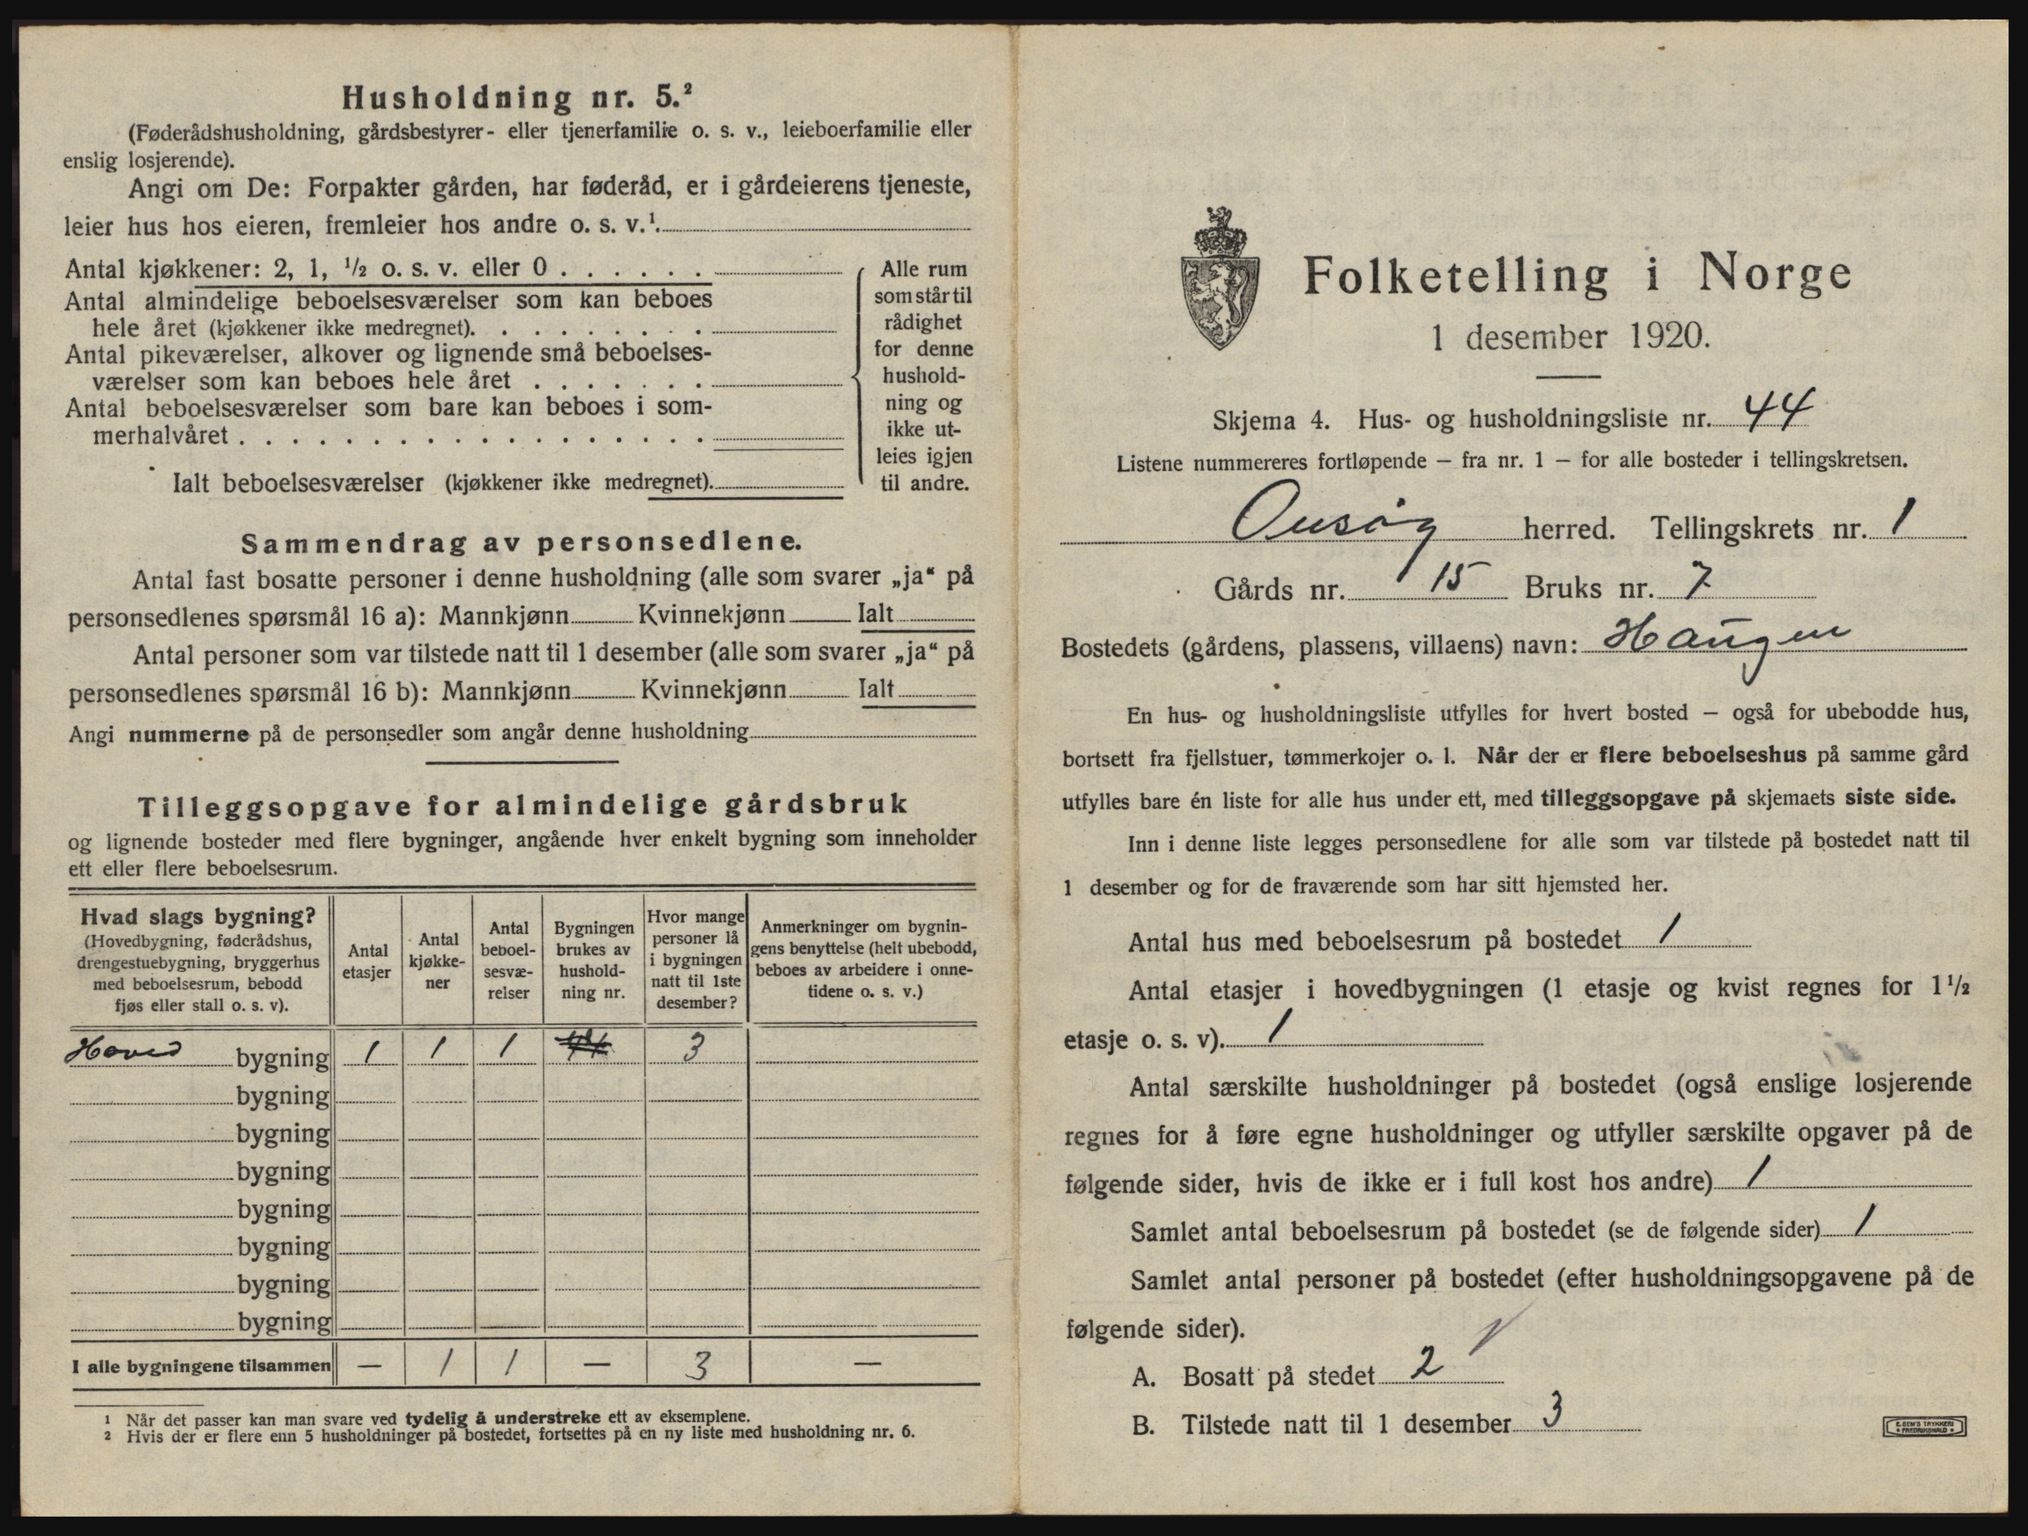 Husholdning nr. 5.²
(Føderådshusholdning, gårdsbestyrer- eller tjenerfamilie o. s. v., leieboerfamilie eller
enslig losjerende).
Angi om De: Forpakter gården, har føderåd, er i gårdeierens tjeneste,
leier hus hos eieren, fremleier hos andre o. s. v.¹.
Antal kjøkkener: 2, 1, ½ o. s. v. eller 0 . . . . . .
Antal almindelige beboelsesværelser som kan beboes
hele året (kjøkkener ikke medregnet). . . . . . . . .
Antal pikeværelser, alkover og lignende små beboelses-
værelser som kan beboes hele året . . . . . . .
Antal beboelsesværelser som bare kan beboes i som-
merhalvåret . . . . . . . . . . . . . . . . . .
Ialt beboelsesværelser (kjøkkener ikke medregnet).
Alle rum
som står til
rådighet
for denne
hushold-
ning og
ikke ut-
leies igjen
til andre.
Sammendrag av personsedlene.
Antal fast bosatte personer i denne husholdning (alle som svarer „ja“ på
personsedlenes spørsmål 16 a): Mannkjønn Kvinnekjønn Ialt
Antal personer som var tilstede natt til 1 desember (alle som svarer „ja“ på
personsedlenes spørsmål 16 b): Mannkjønn Kvinnekjønn Ialt
Angi nummerne på de personsedler som angår denne husholdning
Tilleggsopgave for almindelige gårdsbruk
og lignende bosteder med flere bygninger, angående hver enkelt bygning som inneholder
ett eller flere beboelsesrum.
Hvad slags bygning?
(Hovedbygning, føderådshus,
drengestuebygning, bryggerhus
med beboelsesrum, bebodd
fjøs eller stall o. s. v).
Antal
etasjer
Antal
kjøkke-
ner
Antal
beboel-
sesvæ-
relser
Bygningen
brukes av
hushold-
ning nr.
Hvor mange
personer lå
i bygningen
natt til 1ste
desember?
Anmerkninger om bygnin-
gens benyttelse (helt ubebodd,
beboes av arbeidere i onne-
tidene o. s. v.)
Hoved bygning 1 1 1 3
bygning
bygning
bygning
bygning
bygning
bygning
bygning
I alle bygningene tilsammen — 1 1 — 3 —
¹ Når det passer kan man svare ved tydelig å understreke ett av eksemplene.
² Hvis der er flere enn 5 husholdninger på bostedet, fortsettes på en ny liste med husholdning nr. 6.
Folketelling i Norge
1 desember 1920.
Skjema 4. Hus- og husholdningsliste nr. 44
Listene nummereres fortløpende – fra nr. 1 – for alle bosteder i tellingskretsen.
Onsøy herred. Tellingskrets nr. 1
Gårds nr. 15 Bruks nr. 7
Bostedets (gårdens, plassens, villaens) navn: Haugen
En hus- og husholdningsliste utfylles for hvert bosted – også for ubebodde hus,
bortsett fra fjellstuer, tømmerkojer o. l. Når der er flere beboelseshus på samme gård
utfylles bare én liste for alle hus under ett, med tilleggsopgave på skjemaets siste side.
Inn i denne liste legges personsedlene for alle som var tilstede på bostedet natt til
1 desember og for de fraværende som har sitt hjemsted her.
Antal hus med beboelsesrum på bostedet 1
Antal etasjer i hovedbygningen (1 etasje og kvist regnes for 1½
etasje o. s. v). 1
Antal særskilte husholdninger på bostedet (også enslige losjerende
regnes for å føre egne husholdninger og utfyller særskilte opgaver på de
følgende sider, hvis de ikke er i full kost hos andre) 1
Samlet antal beboelsesrum på bostedet (se de følgende sider) 1
Samlet antal personer på bostedet (efter husholdningsopgavene på de
følgende sider).
A. Bosatt på stedet 2
B. Tilstede natt til 1 desember 3